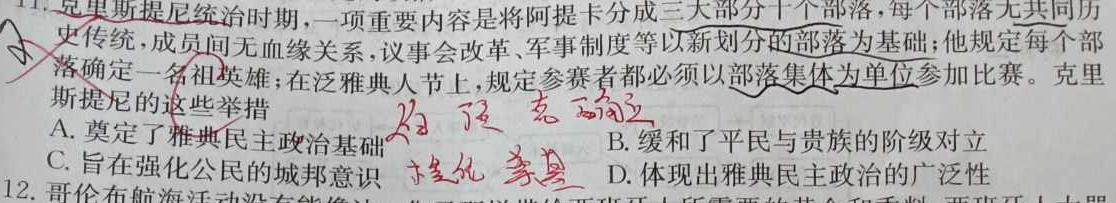 11. 克里斯提尼统治时期,一项重要内容是将阿提卡分成三大部分十个部落,每个部落无共同历
史传统,成员间无血缘关系,议事会改革、军事制度等以新划分的部落为基础;他规定每个部
落确定一名祖英雄;在泛雅典人节上,规定参赛者都必须以部落集体为单位参加比赛。克里
斯提尼的这些举措
A. 奠定了雅典民主政治基础
B. 缓和了平民与贵族的阶级对立
C. 旨在强化公民的城邦意识
D. 体现出雅典民主政治的广泛性
12. 哥伦布航海活动没有能像